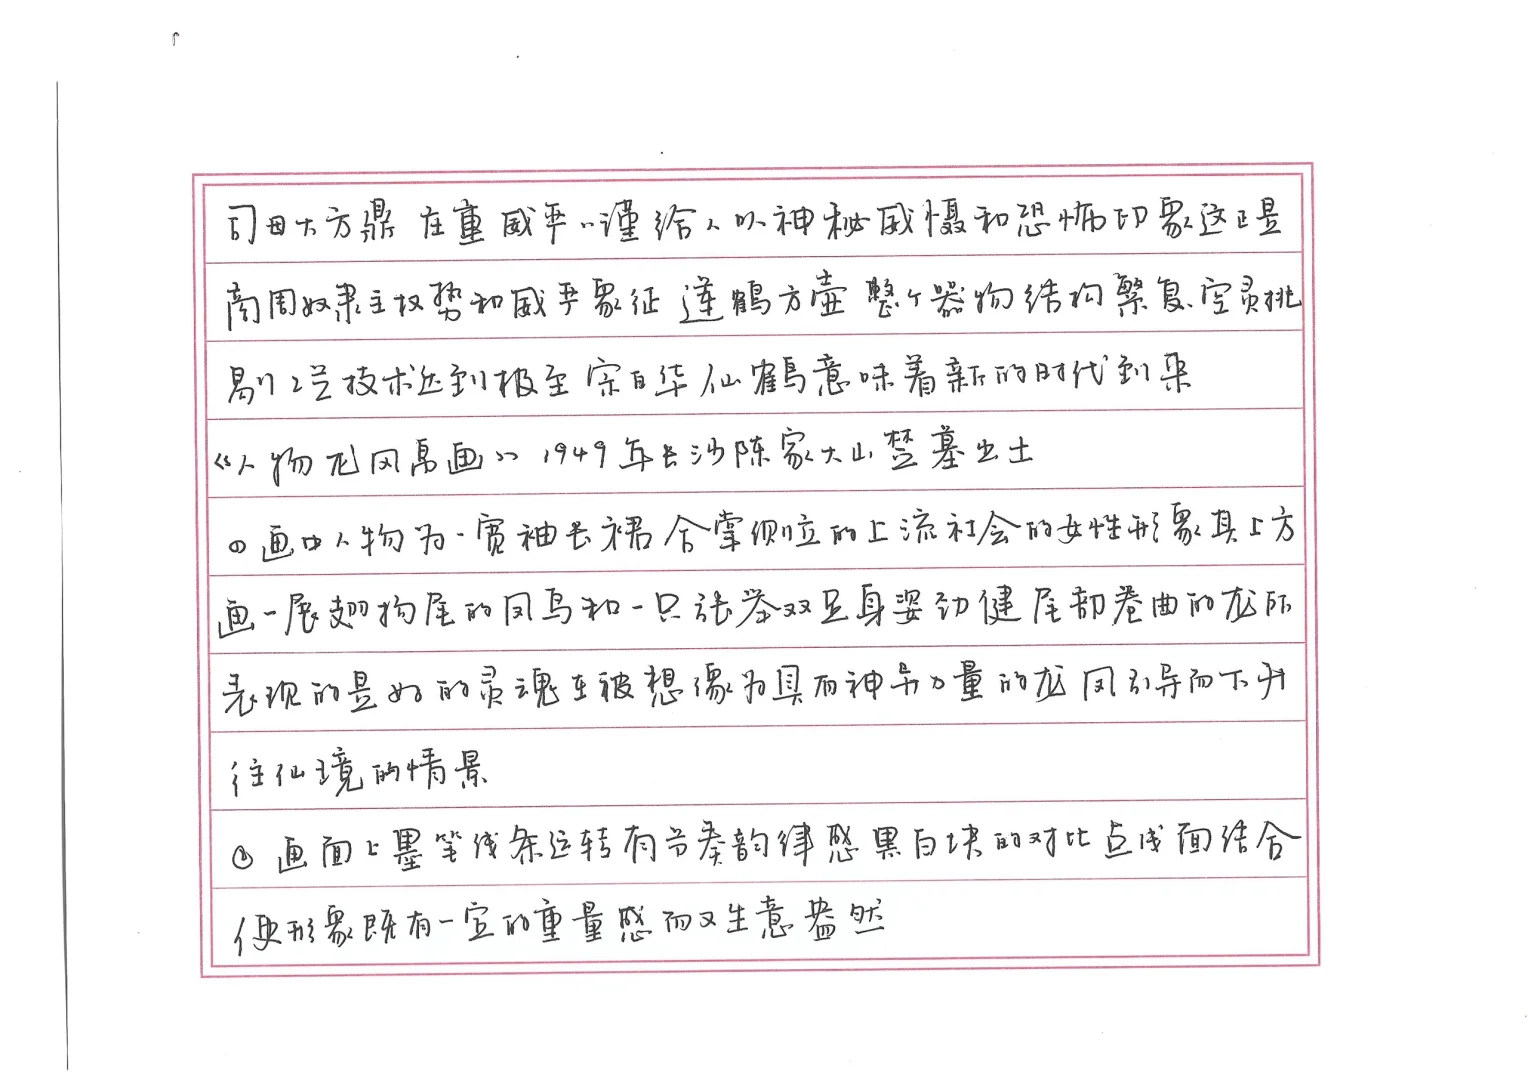 司母大方鼎 在重 威严 谨 给人以神秘威慑和恐怖印象这正是
商周奴隶主权势和威严象征 莲鹤方壶 整个器物结构繁复空灵挑
剔 工艺技术达到极至 宗白华 仙鹤意味着新的时代到来
《人物龙凤帛画》 1949年长沙陈家大山楚墓出土
① 画中人物为一宽袖长裙合掌侧立的上流社会的女性形象其上方
画一展翅拘尾的凤鸟和一只张举双足身姿劲健尾部卷曲的龙所
表现的是妇的灵魂在被想像为具有神异力量的龙凤引导而下升
往仙境的情景
② 画面上墨笔线条运转有节奏韵律感黑白块的对比点线面结合
使形象既有一定的重量感而又生意盎然